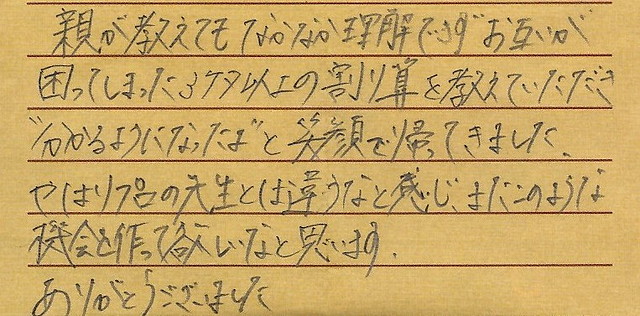 親が教えてもなかなか理解できず お互いが
困ってしまった3ケタ以上の割り算を教えていただき
"わかるようになったよ"と笑顔で帰ってきました、
やはりプロの先生とは違うなと感じ、またこのような
機会を作って欲しいなと思います.
ありがとうございました